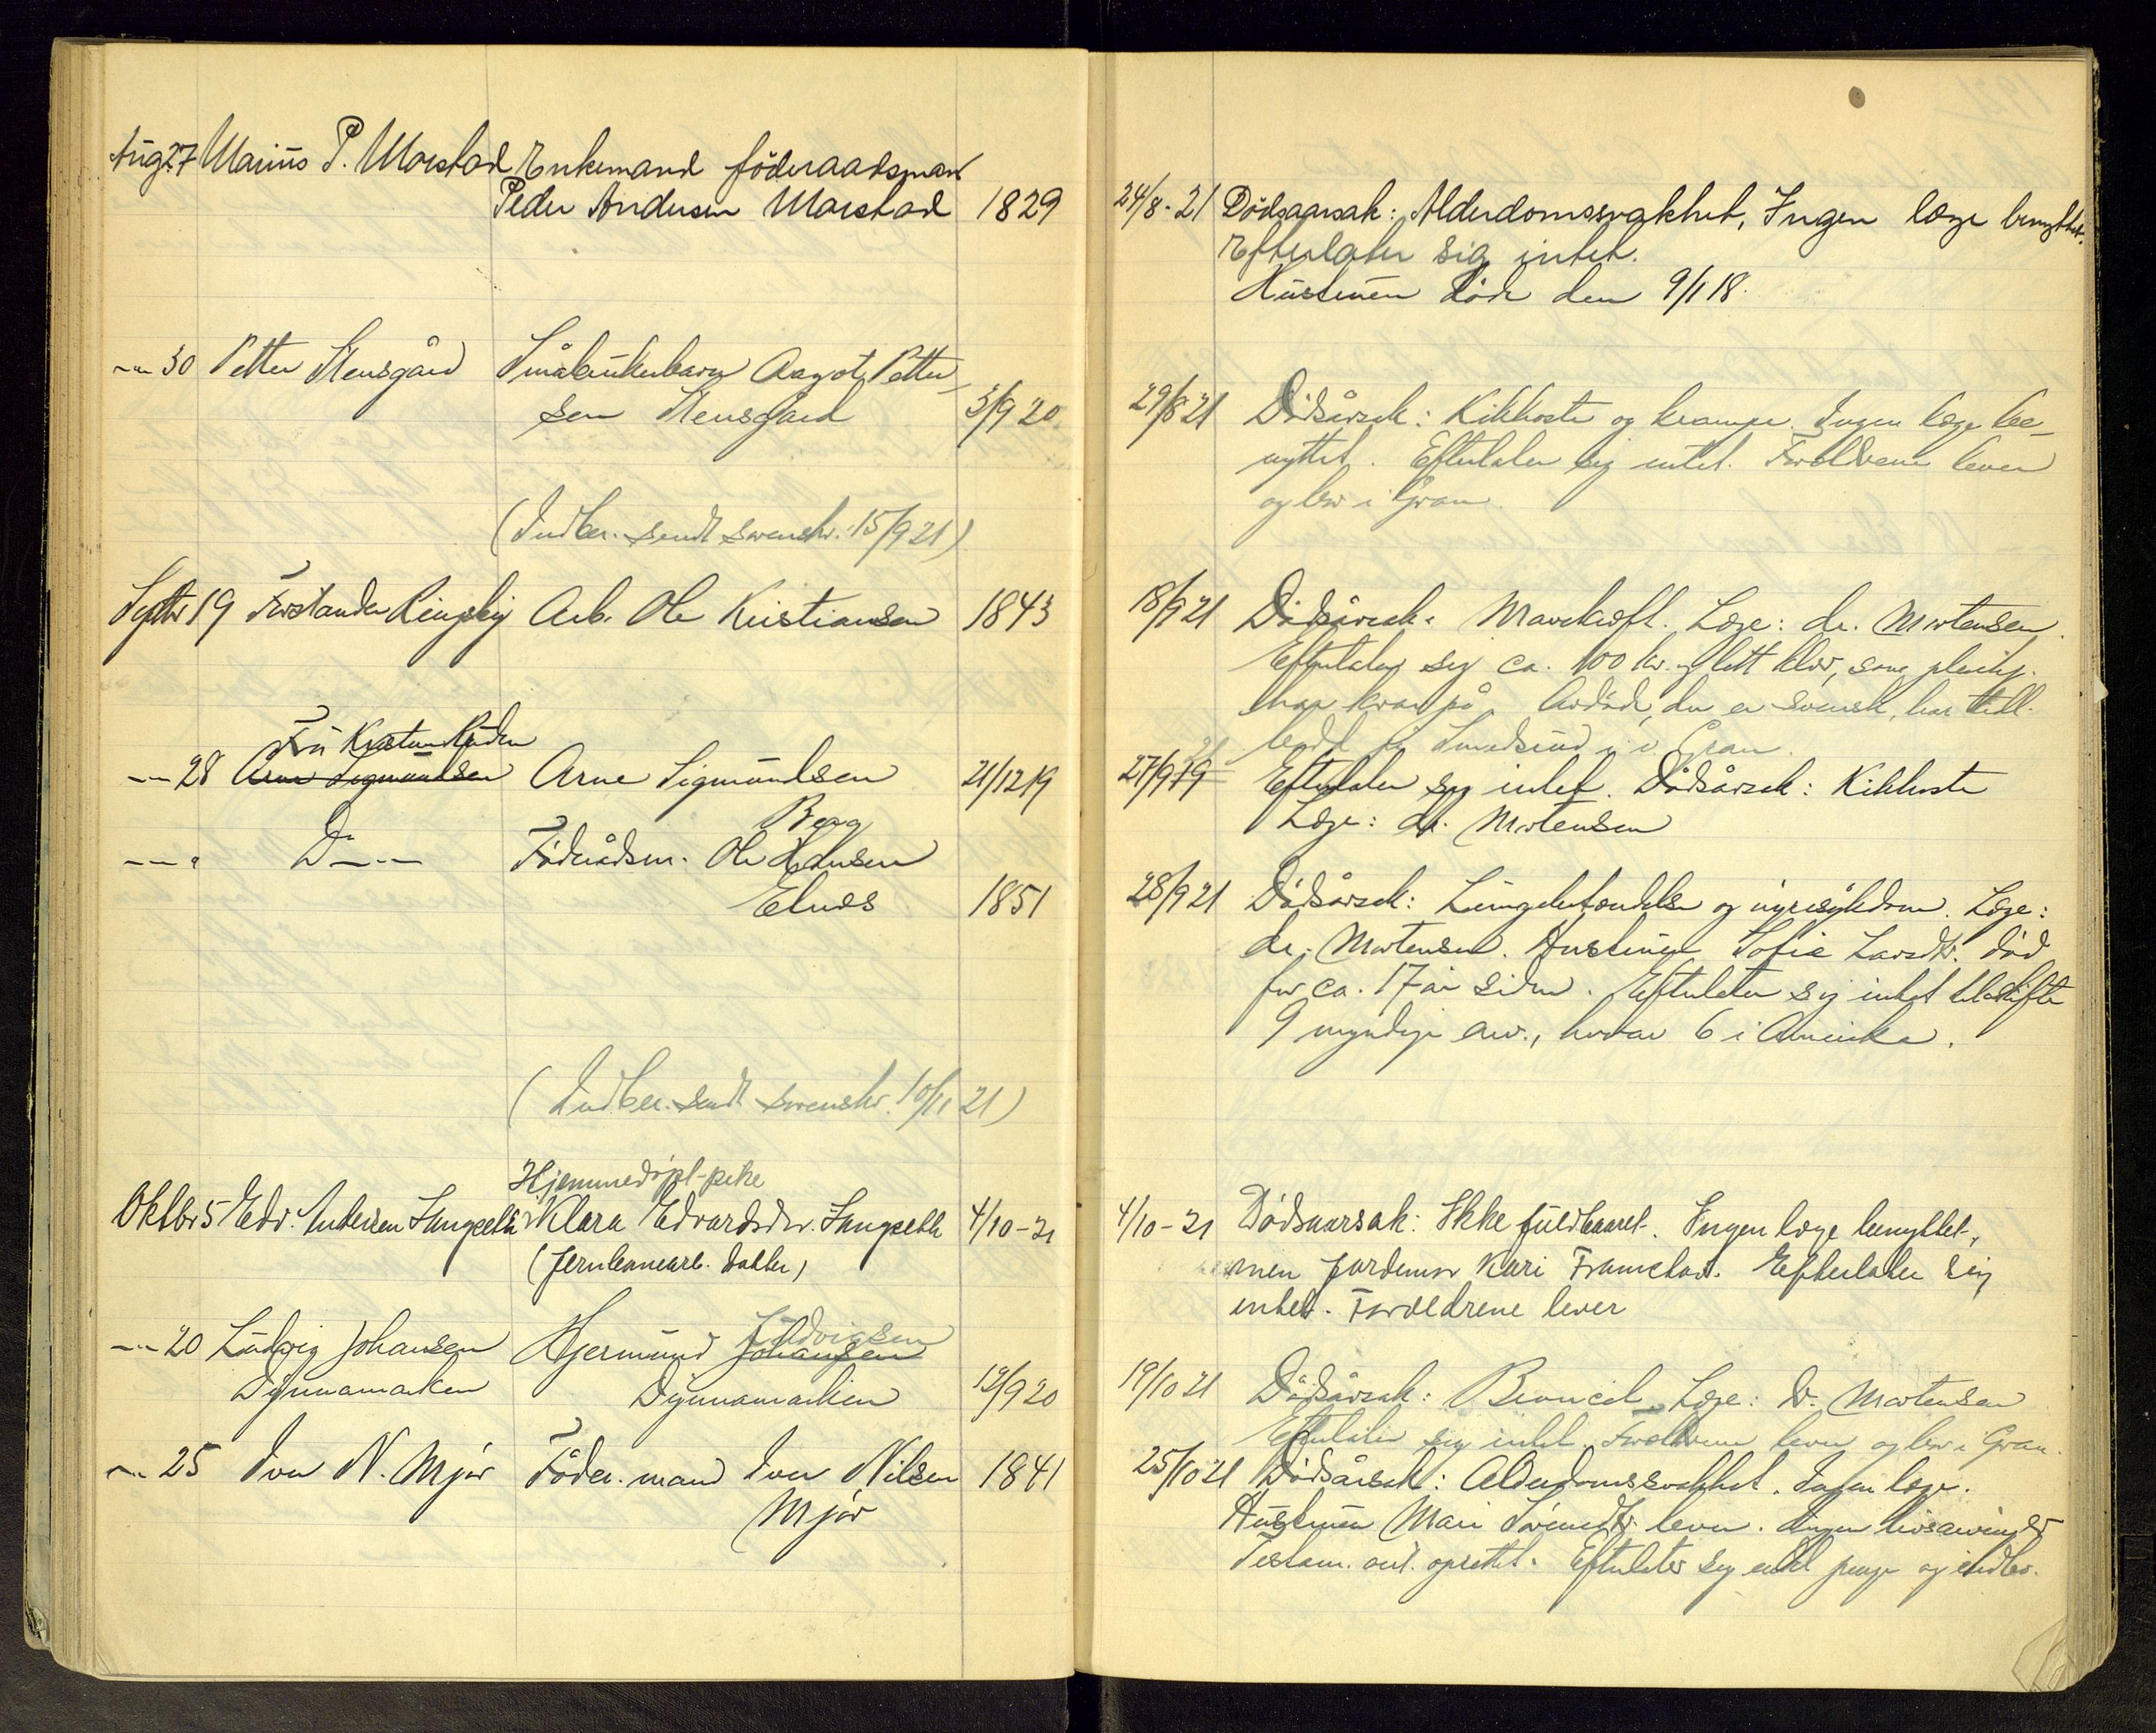 Aug 27 Marius P. Morstad Enkemand föderaadsman
Peder Andersen Morstad 1829
24/8-21 Dödsaarsak: Alderdomssvakhet, Ingen læge benyttet.
Efterlater sig intet.
Hustruen döde den 9/1 18.
-"- 30 Petter Stensgård Småbrukerbarn Aagot Petter-
sen Stensgård 3/9 20
29/8 21 Dødsårsak: Kikhoste og krampe. Ingen læge be-
nyttet. Efterlater sig intet. Forældrene lever
og bor i Gran.
(Indber. sendt sorenskr. 15/9 21)
Septbr 19 Forstander Ringstig Arb. Ole Kristiansen 1843
18/9 21 Dødsårsak: Mavekræft. Læge: dr. Mortensen.
Efterlater sig ca. 100 kr. og litt klær, som
har krav på. Avdøde, der er svensk, har tidl.
i Gran.
-"- 28 Arne Sigmundsen Fru Kristine Ruden Arne Sigmundsen 21/12 19
27/9 19 21 Efterlater sig intet. Dødsårsak: Kikhoste
Læge: dr. Mortensen
-"- D-"- Föderådsm. Ole Hansen Berg
Elnes 1851
28/9 21 Dødsårsak: Lungebetændelse og nyresykdom. Læge:
dr. Mortensen. Hustruen Sofie Larsdtr. død
for ca. 17 år siden. Efterlater sig intet til skifte
9 myndige arv., hvorav 6 i Amerika.
(Indber. sendt sorenskr. 10/11 21)
Hjemmedöpt pike
Oktbr 5 Edv. Andersen Hungseth Klara Edvardsdtr. Hungseth 4/10-21
(Jernbanearb. datter)
4/10-21 Dödsaarsak: Ikke fuldbaaret. Ingen læge benyttet,
men jordemor Kari Framstad. Efterlater sig
intet. Forældrene lever
-"- 20 Ludvig Johansen Hjermund Johansen Ludvigsen
Dynnamarken Dynnamarken 12/9 20
19/10 21 Dødsårsak: Broncit. Læge: Dr. Mortensen
Efterlater sig intet. Forældrene lever og bor i Gran.
-"- 25 Iver N. Mjør Föder.mand Iver Nilsen 1841
Mjør
25/10 21 Dødsårsak: Alderdomssvakhet. Ingen læge.
Hustruen Mari Iversdtr. lever. Ingen livsarvinger
Testam. er oprettet. Efterlater sig endel penge og indbo.